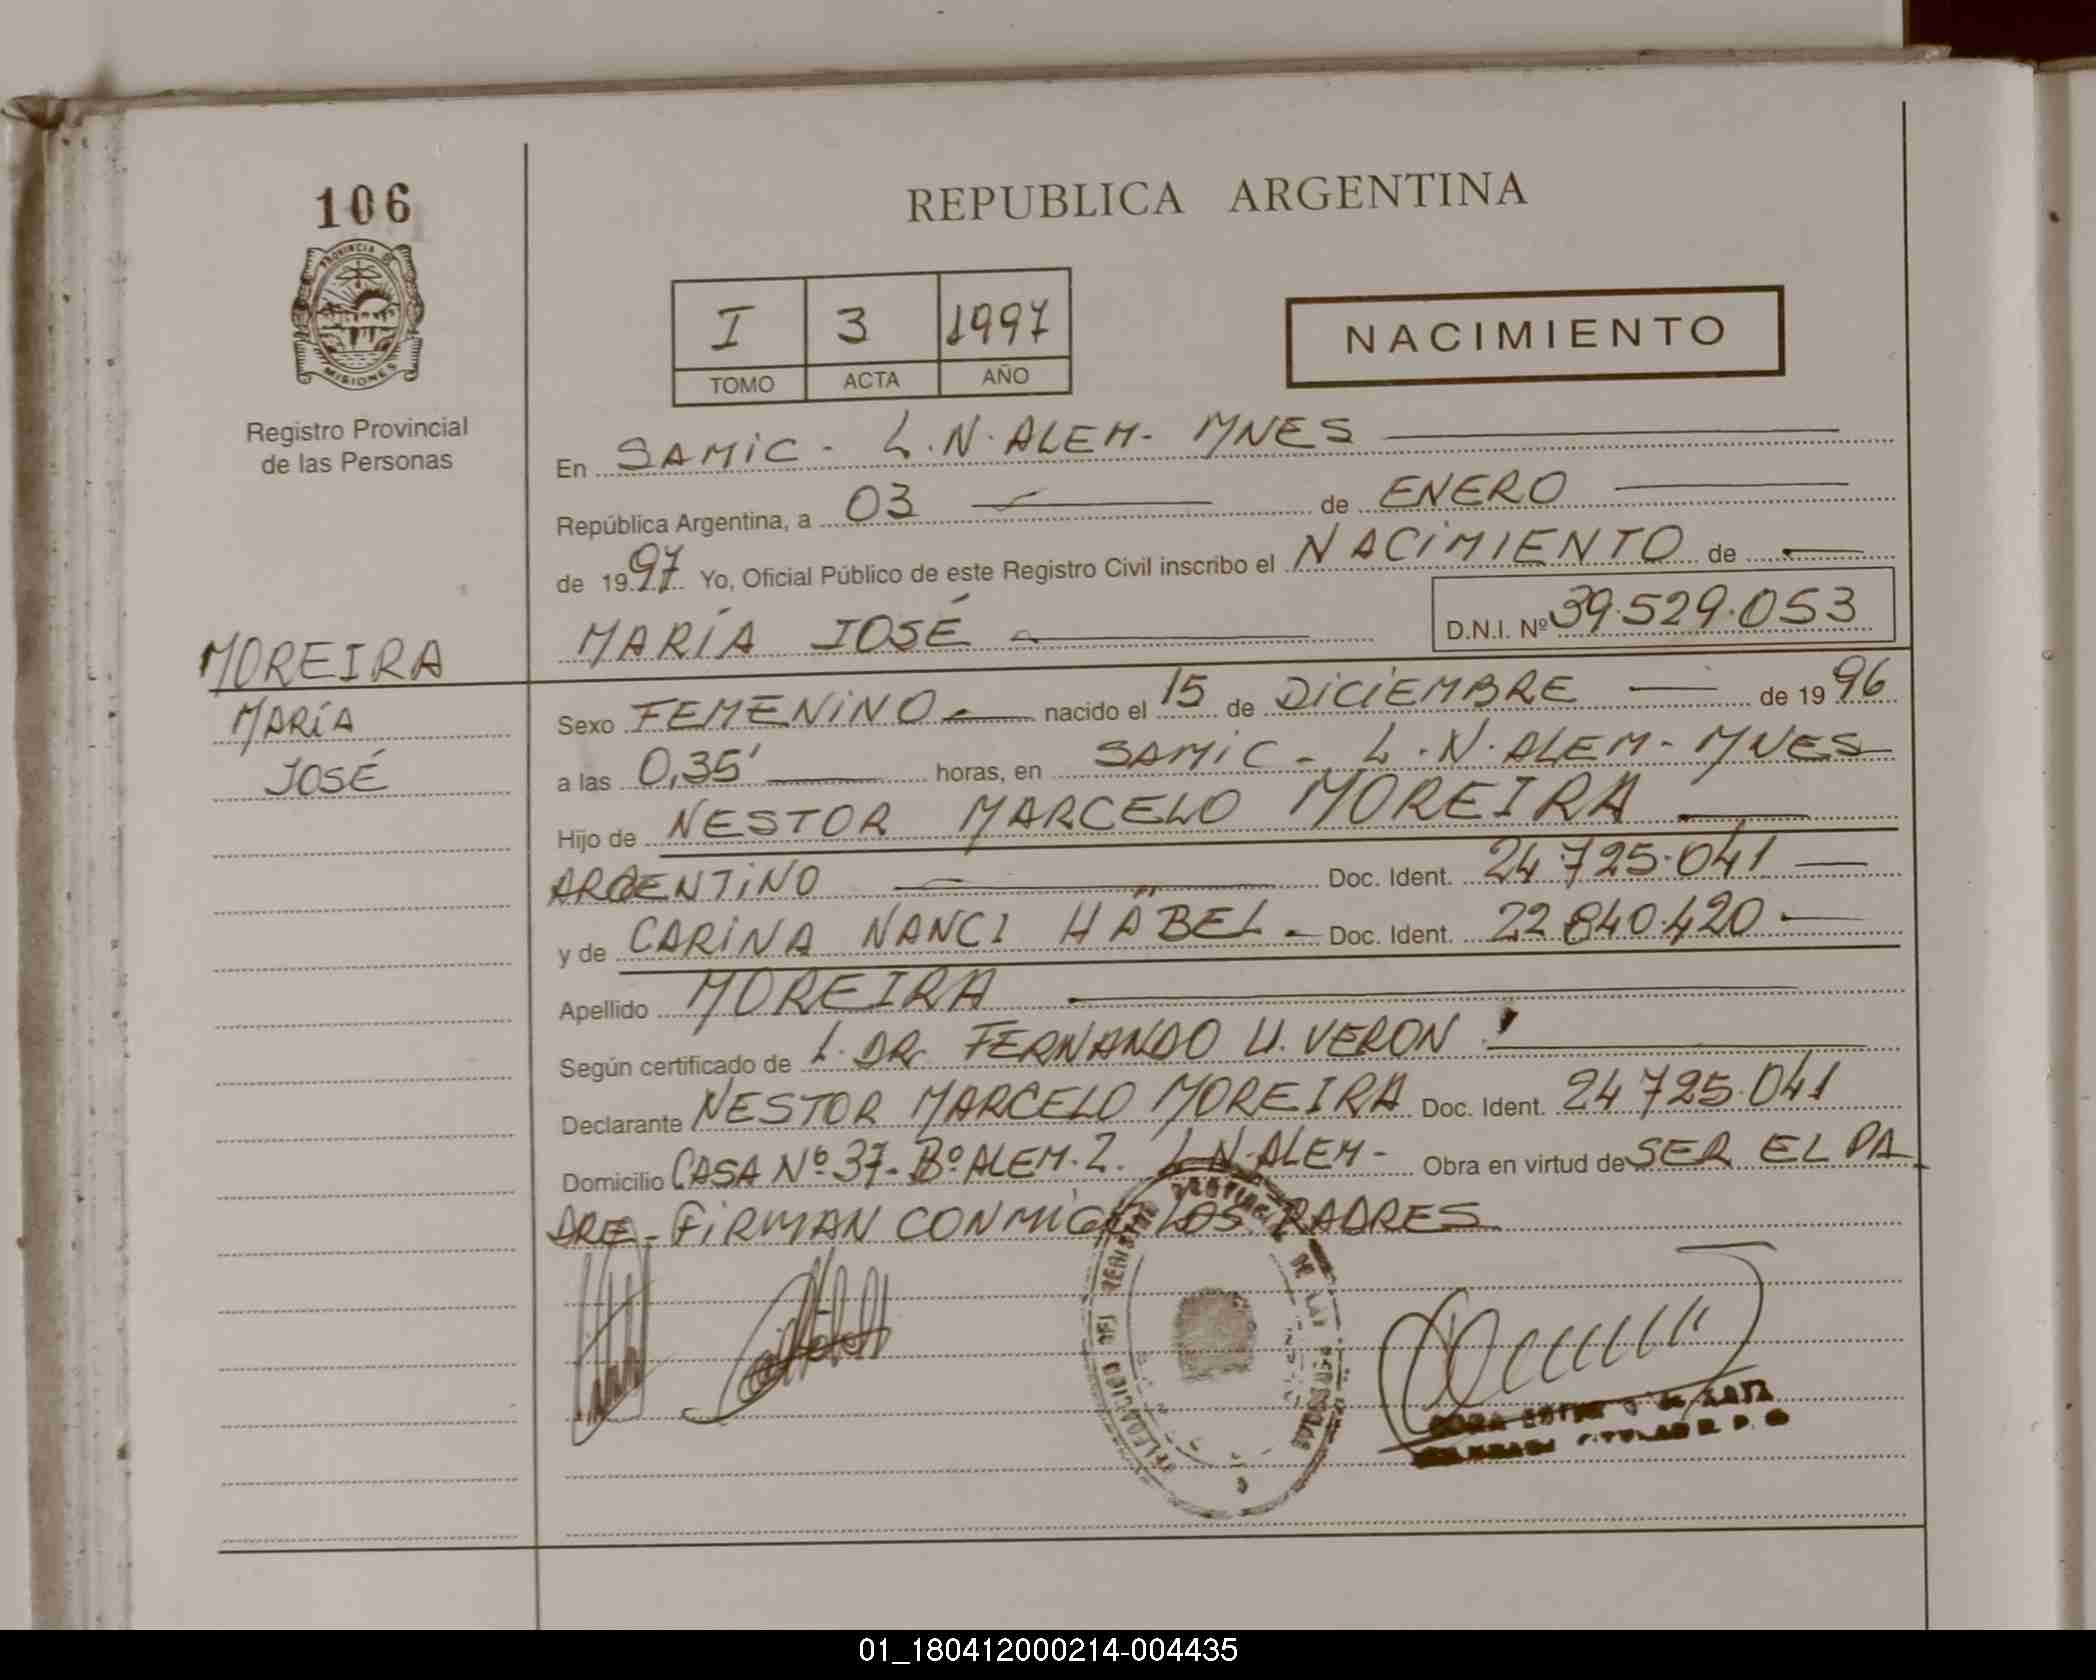 106
PROVINCIA DE
MISIONES
Registro Provincial
de las Personas
MOREIRA
MARÍA
JOSÉ
REPUBLICA ARGENTINA
I 3 1997
TOMO ACTA AÑO
NACIMIENTO
En SAMIC - L.N. ALEM - MNES
República Argentina, a 03 de ENERO
de 1997 Yo, Oficial Público de este Registro Civil inscribo el NACIMIENTO de
MARÍA JOSÉ D.N.I. Nº 39.529.053
Sexo FEMENINO nacido el 15 de DICIEMBRE de 1996
a las 0,35' horas, en SAMIC - L.N. ALEM - MNES
Hijo de NESTOR MARCELO MOREIRA
ARGENTINO Doc. Ident. 24.725.041
y de CARINA NANCI HÄBEL - Doc. Ident. 22.840.420
Apellido MOREIRA
Según certificado de L. DR. FERNANDO U. VERON
Declarante NESTOR MARCELO MOREIRA Doc. Ident. 24.725.041
Domicilio CASA Nº 37 - Bº ALEM. 2. L.N. ALEM - Obra en virtud de SER EL PA
DRE - FIRMAN CONMIGO LOS PADRES
PROVINCIAL DE LAS PERSONAS
01_180412000214-004435